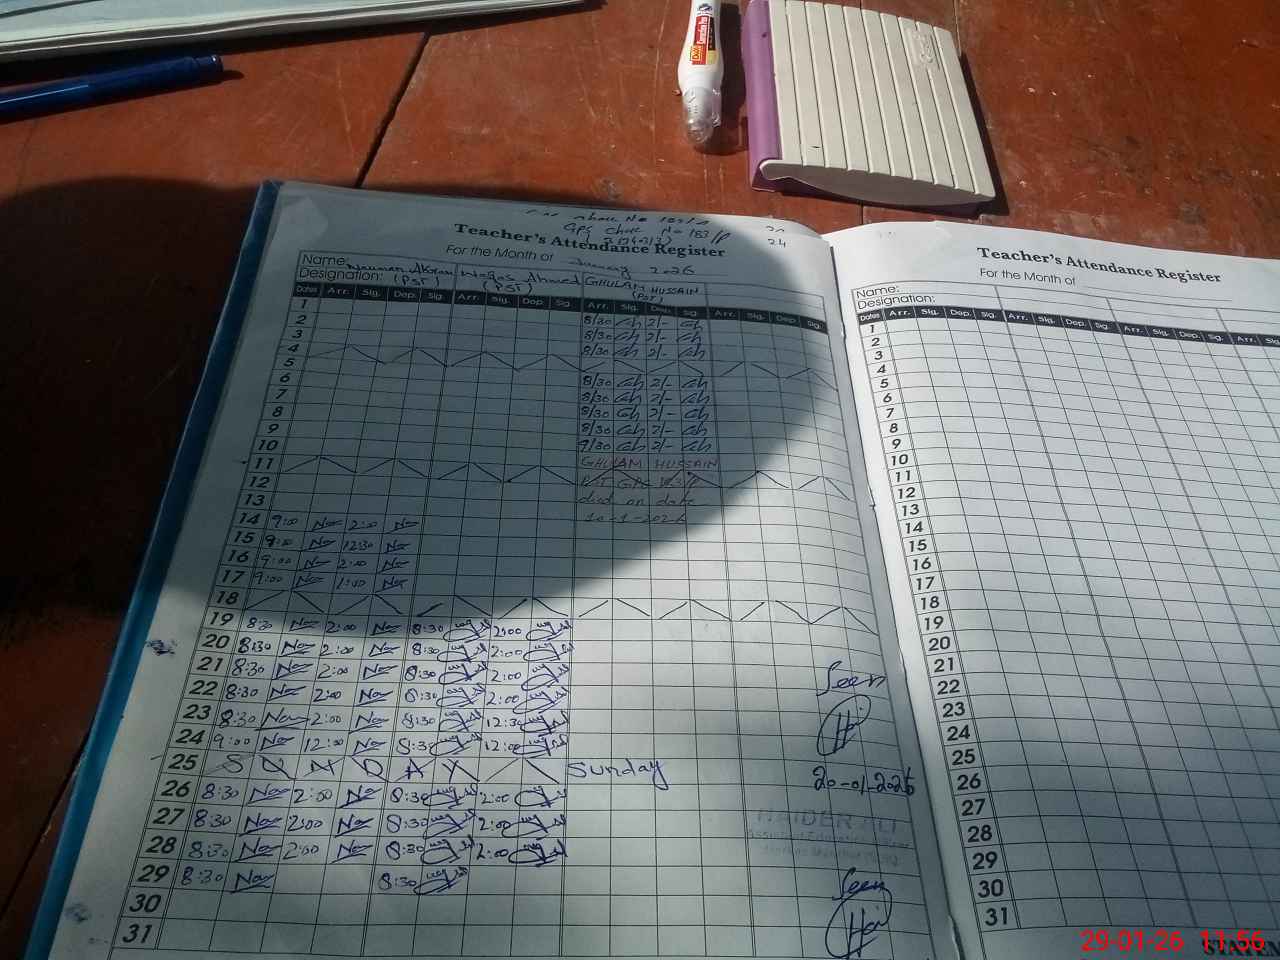 GPS Chak No 183/P
Teacher's Attendance Register
For the Month of January 2026
Name: Nouman Akram Waqas Ahmed GHULAM HUSSAIN
Designation: (PST) (PST) (PST)
Dates Arr. Sig. Dep. Sig. Arr. Sig. Dep. Sig. Arr. Sig. Dep. Sig. Arr. Sig. Dep. Sig.
1
2 8/30 Gh 2/- Gh
3 8/30 Gh 2/- Gh
4 8/30 Gh 2/- Gh
5
6 8/30 Gh 2/- Gh
7 8/30 Gh 2/- Gh
8 8/30 Gh 2/- Gh
9 8/30 Gh 2/- Gh
10 9/30 Gh 2/- Gh
11 GHULAM HUSSAIN
12 PST GPS 183/P
13 died on date
14 9:00 Nor 2:00 Nor 10-1-2026
15 9:00 Nor 12:30 Nor
16 9:00 Nor 2:00 Nor
17 9:00 Nor 1:00 Nor
18
19 8:30 Nor 2:00 Nor 8:30 2:00
20 8:30 Nor 2:00 Nor 8:30 2:00
21 8:30 Nor 2:00 Nor 8:30 2:00
22 8:30 Nor 2:00 Nor 8:30 2:00
23 8:30 Nor 2:00 Nor 8:30 12:30
24 9:00 Nor 12:00 Nor 8:30 12:00
25 S U N D A Y Sunday
26 8:30 Nor 2:00 Nor 8:30 2:00
27 8:30 Nor 2:00 Nor 8:30 2:00
28 8:30 Nor 2:00 Nor 8:30 2:00
29 8:30 Nor 8:30
30
31
Seen
20-01-2026
HAIDER ALI
Seen
Teacher's Attendance Register
For the Month of
Name:
Designation:
Dates Arr. Sig. Dep. Sig. Arr. Sig. Dep. Sig. Arr. Sig. Dep. Sig. Arr. Sig.
1
2
3
4
5
6
7
8
9
10
11
12
13
14
15
16
17
18
19
20
21
22
23
24
25
26
27
28
29
30
31
29-01-26 11:56